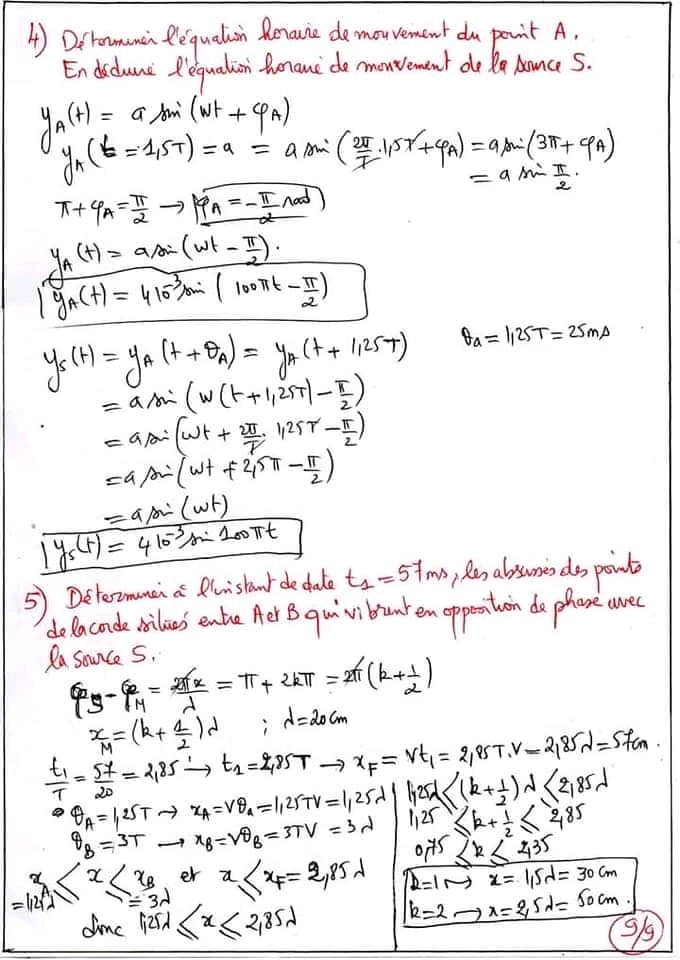 4) Déterminer l'équation horaire de mouvement du point A.
En déduire l'équation horaire de mouvement de la source S.
y_A(t) = a sin(wt + φ_A)
y_A(t = 1,5T) = a = a sin(2π/T · 1,5T + φ_A) = a sin(3π + φ_A)
= a sin π/2.
π + φ_A = π/2 → φ_A = -π/2 rad
y_A(t) = a sin(wt - π/2).
y_A(t) = 4 10^-3 sin(100πt - π/2)
y_s(t) = y_A(t + θ_A) = y_A(t + 1,25T) θ_a = 1,25T = 25ms
= a sin(w(t + 1,25T) - π/2)
= a sin(wt + 2π/T · 1,25T - π/2)
= a sin(wt + 2,5π - π/2)
= a sin(wt)
y_s(t) = 4 10^-3 sin 100πt
5) Déterminer à l'instant de date t_1 = 57ms, les abscisses des points
de la corde situés entre A et B qui vibrent en opposition de phase avec
la source S.
φ_S - φ_M = 2πx/λ = π + 2kπ = 2π(k + 1/2)
x_M = (k + 1/2)λ ; λ = 20cm
t_1/T = 57/20 = 2,85 → t_1 = 2,85T → x_F = vt_1 = 2,85T.V = 2,85λ = 57cm.
• θ_A = 1,25T → x_A = Vθ_a = 1,25TV = 1,25λ
θ_B = 3T → x_B = Vθ_B = 3TV = 3λ
x_A ⩽ x ⩽ x_B et x ⩽ x_F = 2,85λ
= 1,25λ = 3λ
donc 1,25λ ⩽ x ⩽ 2,85λ
1,25λ ⩽ (k + 1/2)λ ⩽ 2,85λ
1,25 ⩽ k + 1/2 ⩽ 2,85
0,75 ⩽ k ⩽ 2,35
k = 1 → x = 1,5λ = 30cm
k = 2 → x = 2,5λ = 50cm.
9/9